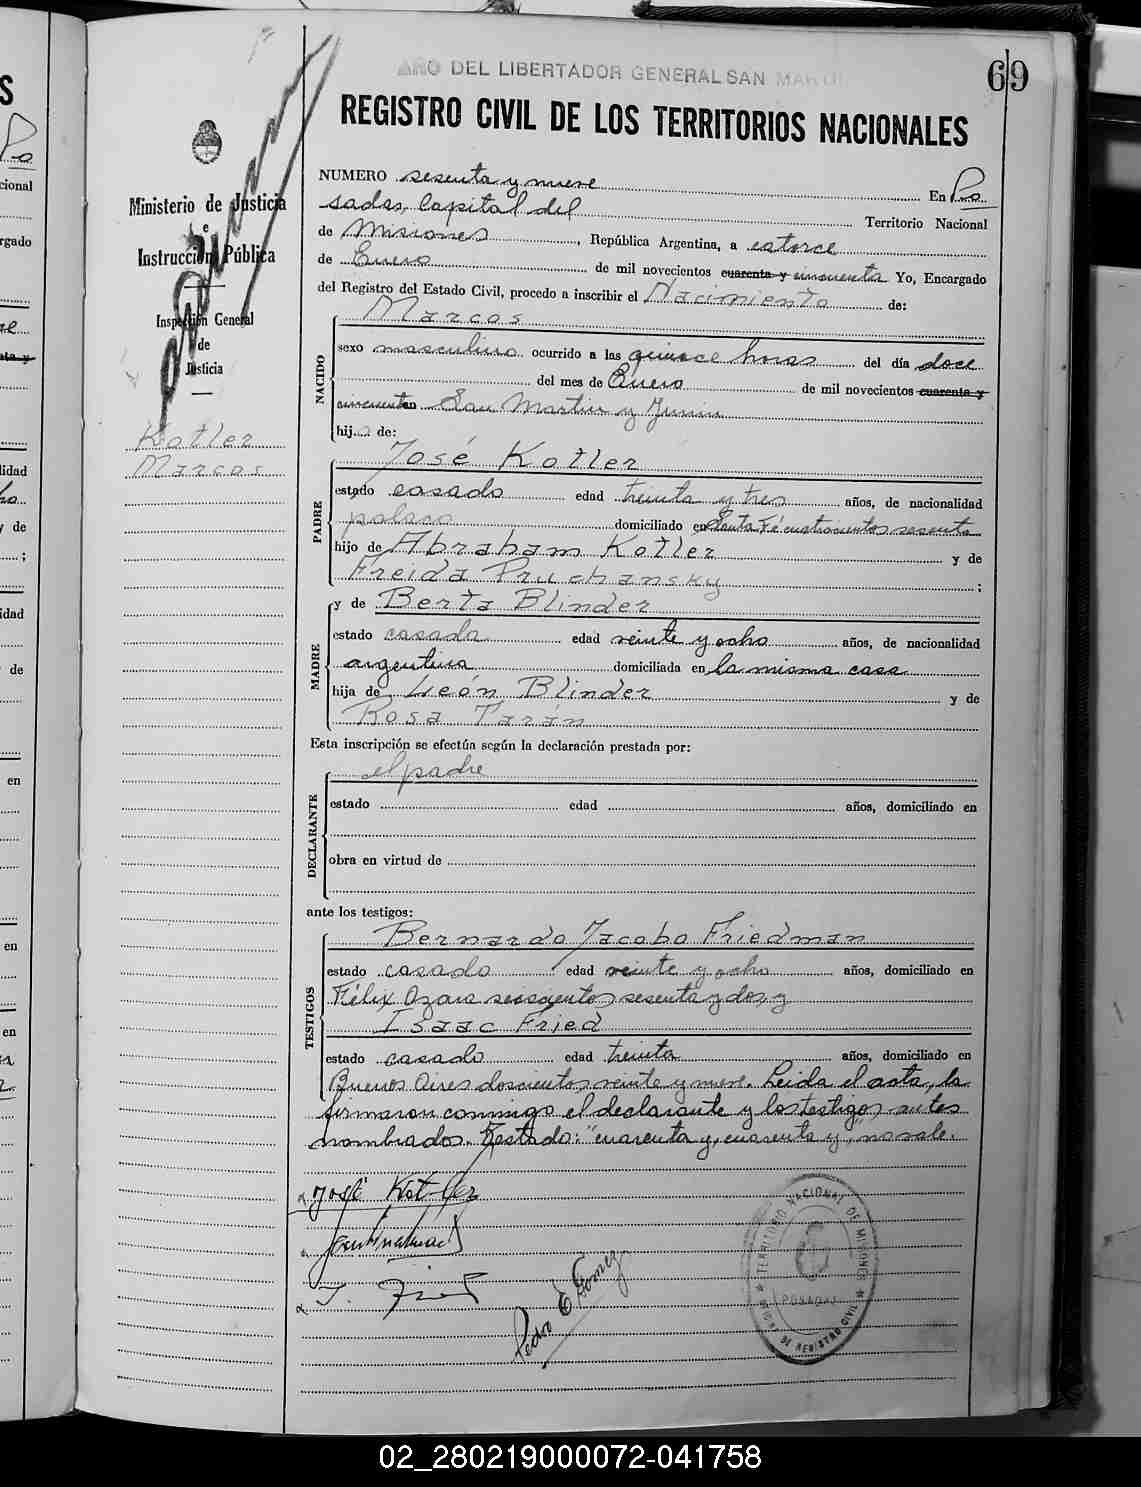 AÑO DEL LIBERTADOR GENERAL SAN MARTIN
69
REGISTRO CIVIL DE LOS TERRITORIOS NACIONALES
Ministerio de Justicia
e
Instrucción Pública
Inspección General
de
Justicia
Kotler
Marcos
NUMERO sesenta y nueve En Po
sadas, Capital del Territorio Nacional
de Misiones, República Argentina, a catorce
de Enero de mil novecientos cuarenta y cincuenta Yo, Encargado
del Registro del Estado Civil, procedo a inscribir el Nacimiento de:
NACIDO
Marcos
sexo masculino ocurrido a las quince horas del día doce
del mes de Enero de mil novecientos cuarenta y
cincuenta en San Martin y Junin
hijo de:
PADRE
José Kotler
estado casado edad treinta y tres años, de nacionalidad
polaco domiciliado en Santa Fé cuatrocientos sesenta
hijo de Abraham Kotler y de
Freida Pruchansky ;
MADRE
y de Berta Blinder
estado casada edad veinte y ocho años, de nacionalidad
argentina domiciliada en la misma casa
hija de León Blinder y de
Rosa Tarán
Esta inscripción se efectúa según la declaración prestada por:
DECLARANTE
el padre
estado edad años, domiciliado en
obra en virtud de
ante los testigos:
TESTIGOS
Bernardo Jacobo Friedman
estado casado edad veinte y ocho años, domiciliado en
Félix Azara seiscientos sesenta y dos y
Isaac Fried
estado casado edad treinta años, domiciliado en
Buenos Aires doscientos veinte y nueve. Leida el acta, la
firmaron conmigo el declarante y los testigos antes
nombrados. Testado: "cuarenta y, cuarenta y," no vale.
José Kotler
I. Fried
Pedro E. Gomez
TERRITORIO NACIONAL DE MISIONES
POSADAS
DE REGISTRO CIVIL
02_280219000072-041758